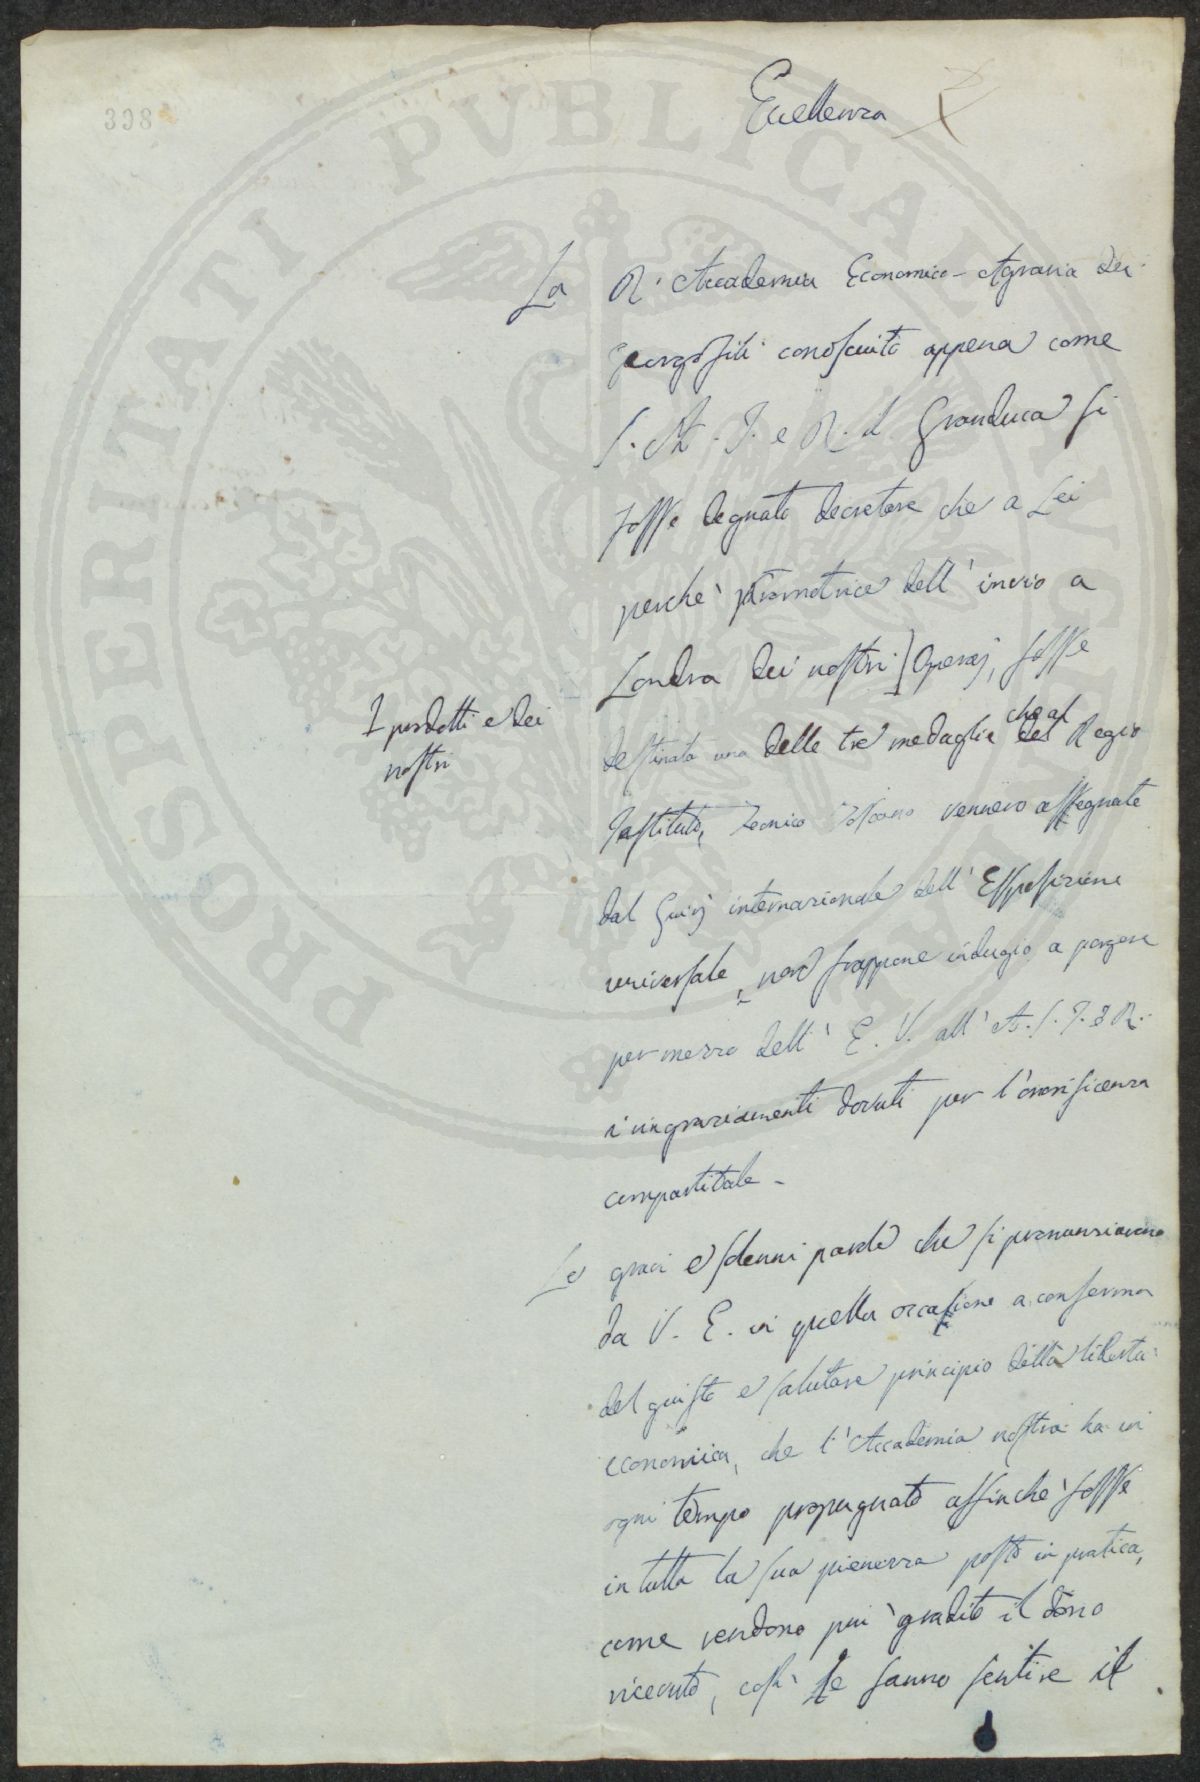 398
Eccellenza
La R. Accademia Economico-Agraria dei
Georgofili conosciuto appena come
S. A. I. e R. il Granduca si
fosse degnato decretare che a Lei
perchè promotrice dell' invio a
Londra dei nostri] Operaj, fosse
I prodotti e dei
nostri
destinata una delle tre medaglie che al del Regio
Istituto, Tecnico Toscano vennero assegnate
dal Giurj internazionale dell' Esposizione
universale, non frappone indugio a porgere
per mezzo dell' E. V. all' A. S. I. e R.
i ringraziamenti dovuti per l'onorificenza
compartitale -
Le gravi e solenni parole che si pronunziarono
da V. E. in quella occasione a conferma
del giusto e salutare principio della libertà
economica, che l'Accademia nostra ha in
ogni tempo propugnato affinchè fosse
in tutta la sua pienezza posto in pratica,
come rendono più gradito il dono
ricevuto, così le fanno sentire il
PROSPERITATI PVBLICAE